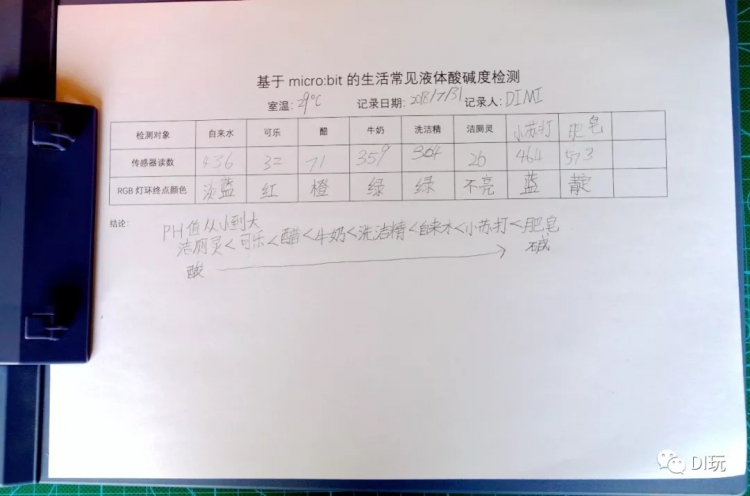 基于 micro:bit 的生活常见液体酸碱度检测
室温: 29°C 记录日期: 2018/7/31 记录人: DIMI
检测对象 自来水 可乐 醋 牛奶 洗洁精 洁厕灵 小苏打 肥皂
传感器读数 436 32 71 359 364 26 464 573
RGB 灯环终点颜色 淡蓝 红 橙 绿 绿 不亮 蓝 靛
结论:
PH值从小到大
洁厕灵<可乐<醋<牛奶<洗洁精<自来水<小苏打<肥皂
酸 碱
DI玩